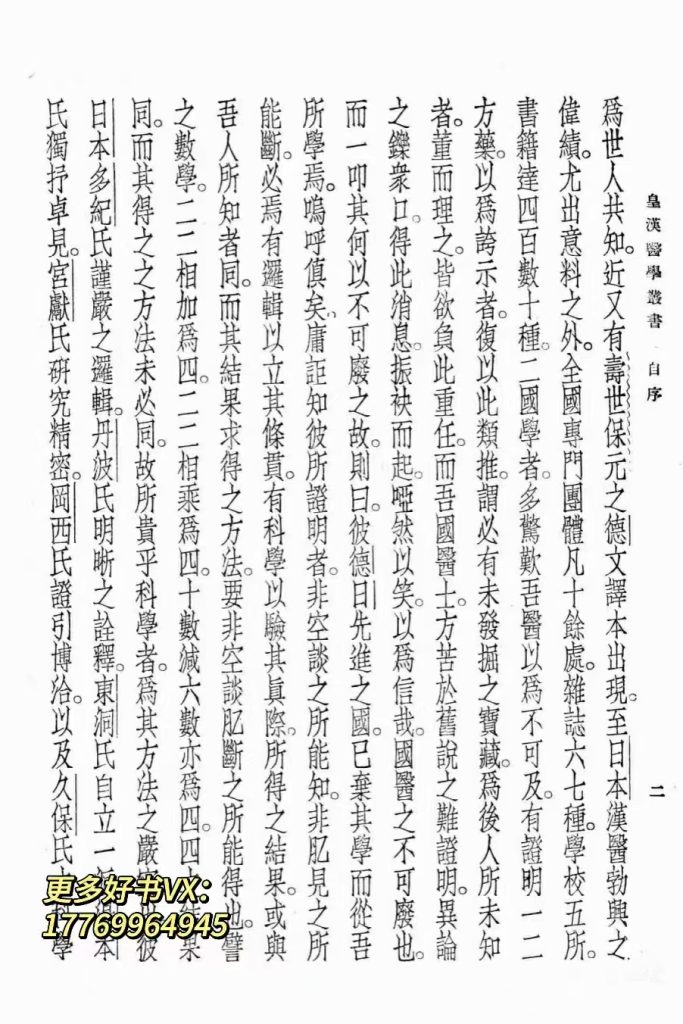 皇漢醫學叢書 自序
二
爲世人共知。近又有壽世保元之德文譯本出現。至日本漢醫勃興之
偉績。尤出意料之外。全國專門團體凡十餘處。雜誌六七種。學校五所。
書籍達四百數十種。二國學者。多驚歎吾醫以爲不可及。有證明一二
方藥。以爲誇示者。復以此類推。謂必有未發掘之寶藏。爲後人所未知
者。董而理之。皆欲負此重任。而吾國醫士。方苦於舊說之難證明。異論
之鑠衆口。得此消息。振袂而起。啞然以笑。以爲信哉。國醫之不可廢也。
而一叩其何以不可廢之故。則曰。彼德日先進之國。已棄其學而從吾
所學焉。嗚呼傎矣。庸詎知彼所證明者。非空談之所能知。非肊見之所
能斷。必焉有邏輯以立其條貫。有科學以驗其眞際。所得之結果。或與
吾人所知者同。而其結果求得之方法。要非空談肊斷之所能得也。譬
之數學。二二相加爲四。二二相乘爲四。十數減六數亦爲四。四結果
同。而其得之之方法未必同。故所貴乎科學者。爲其方法之嚴彼
日本多紀氏謹嚴之邏輯。丹波氏明晰之詮釋。東洞氏自立一本
氏獨抒卓見。宮獻氏硏究精密。岡西氏證引博洽。以及久保氏科學
更多好书VX：
17769964945